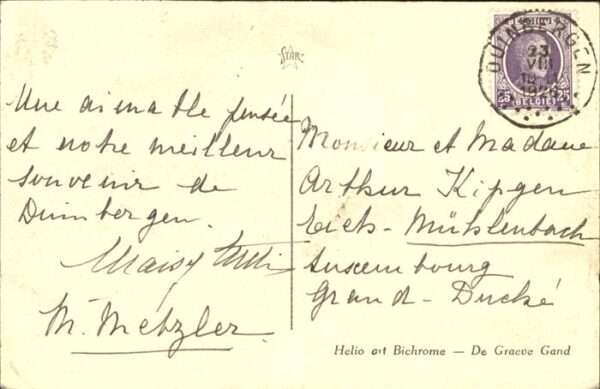 DUINBERGEN
23
VIII
25 BELGIË 25
STAR
Une aimable pensée
et notre meilleur
souvenir de
Duinbergen.
Maisy
M. Metzler.
Monsieur et Madame
Arthur Kipgen
Eich-Mühlenbach
Luxembourg
Grand-Duché
Helio art Bichrome — De Graeve Gand